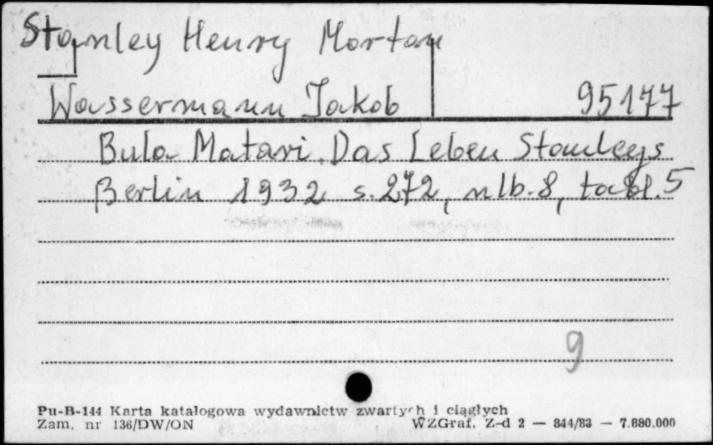 Stanley Henry Mortan
Wassermann Jakob 95177
Bula Matari. Das Leben Stanleys
Berlin 1932 s. 272, nlb. 8, tabl. 5
9
Pu-B-144 Karta katalogowa wydawnictw zwartych i ciągłych
Zam. nr 136/DW/ON WZGraf. Z-d 2 — 844/83 — 7.880.000